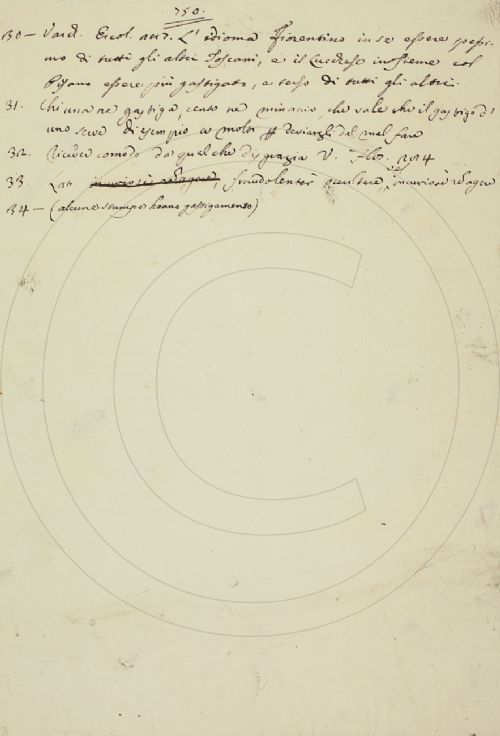 750.
30 – Varch. Ercol. L' idioma Fiorentino in se essere pessi-
mo di tutti gli altri Toscani, e il Lucchese insieme col
Pisano essere più gastigato, e terso di tutti gli altri.
31. Chi una ne gastiga, cento ne minaccia, che vale che il gastigo d'
uno serve di esempio a molti deviargli dal mal fare
32. Riceve comodo da quel che disgrazia V. Flos. 294
33. Lat. fraudolenter
34 – (alcune stampe hanno gastigamento)